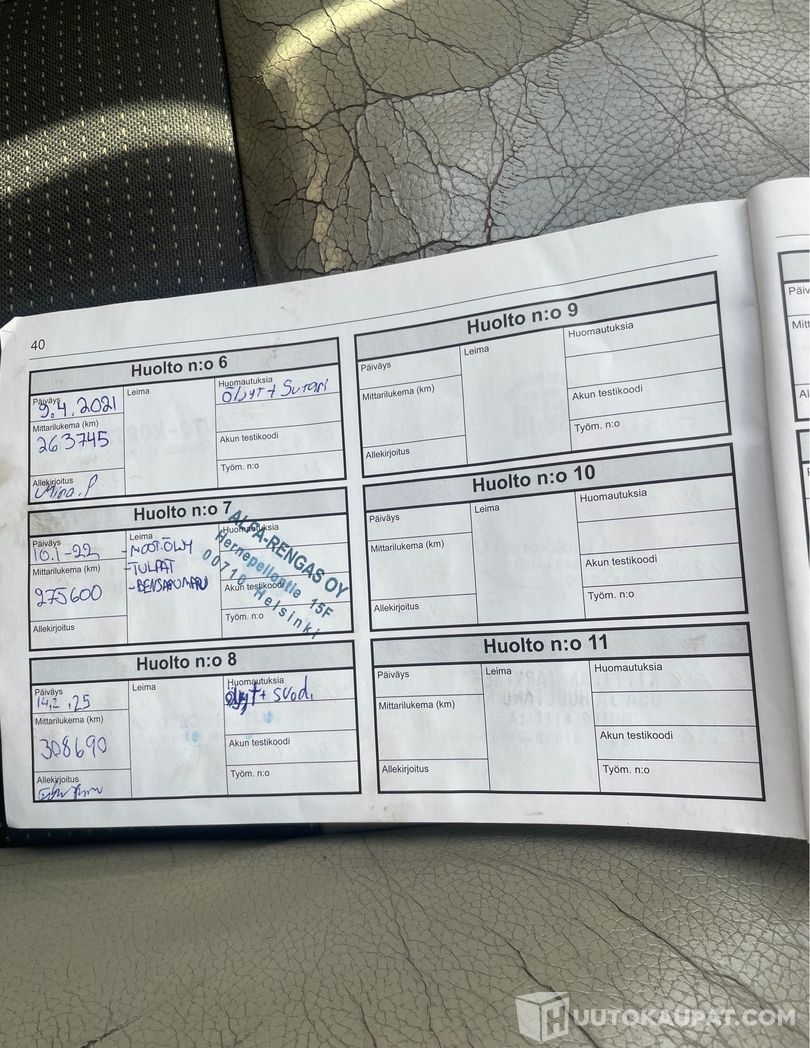 40
Huolto n:o 6
Päiväys
9.4.2021
Leima
Huomautuksia
Öljyt + Suodari
Mittarilukema (km)
263745
Akun testikoodi
Allekirjoitus
Työm. n:o
Huolto n:o 7
Päiväys
10.1-22
Leima
- MOOT.ÖLJY
- TULPAT
Huomautuksia
Mittarilukema (km)
275600
Akun testikoodi
Allekirjoitus
Työm. n:o
ALFA-RENGAS OY
Hernepellontie 15F
00710 Helsinki
Huolto n:o 8
Päiväys
14.2.25
Leima
Huomautuksia
öljyt + suod.
Mittarilukema (km)
308690
Akun testikoodi
Allekirjoitus
Työm. n:o
Huolto n:o 9
Päiväys
Leima
Huomautuksia
Mittarilukema (km)
Akun testikoodi
Allekirjoitus
Työm. n:o
Huolto n:o 10
Päiväys
Leima
Huomautuksia
Mittarilukema (km)
Akun testikoodi
Allekirjoitus
Työm. n:o
Huolto n:o 11
Päiväys
Leima
Huomautuksia
Mittarilukema (km)
Akun testikoodi
Allekirjoitus
Työm. n:o
HUUTOKAUPAT.COM